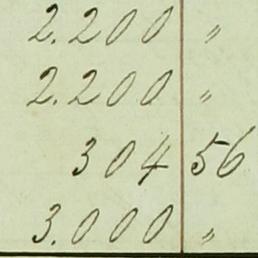 2.200 "
2.200 "
304 56
3.000 "